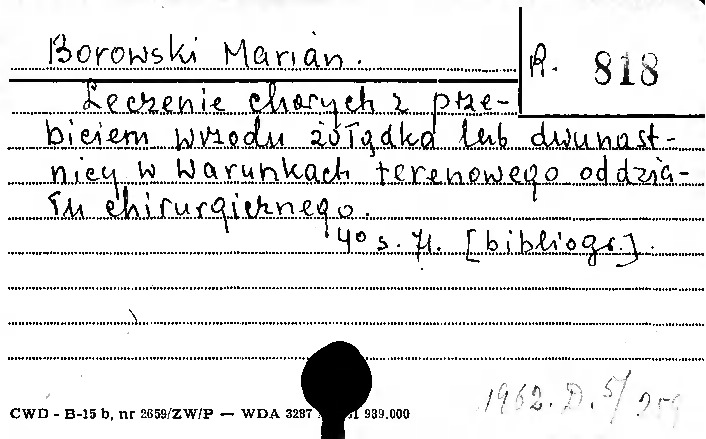 Borowski Marian.
R. 818
Leczenie chorych z prze-
biciem wrzodu żołądka lub dwunast-
nicy w warunkach terenowego oddzia-
łu chirurgicznego.
4° s. 71. [bibliogr.].
CWD - B-15 b, nr 2659/ZW/P — WDA 3287 989.000
1962. D. 5/